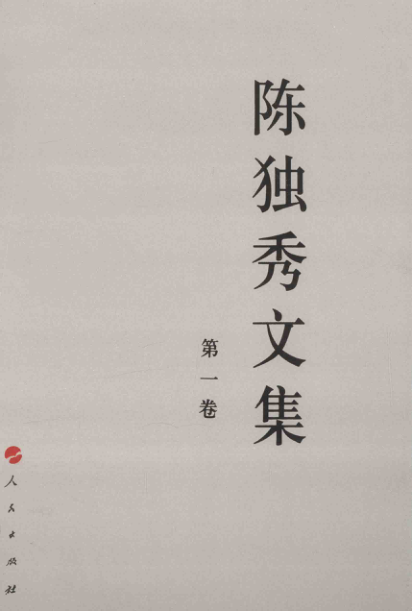 陈独秀文集
第一卷
人民出版社